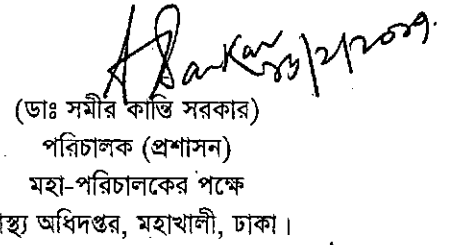 (ডাঃ সমীর কান্তি সরকার)
পরিচালক (প্রশাসন)
মহা-পরিচালকের পক্ষে
াস্থ্য অধিদপ্তর, মহাখালী, ঢাকা।